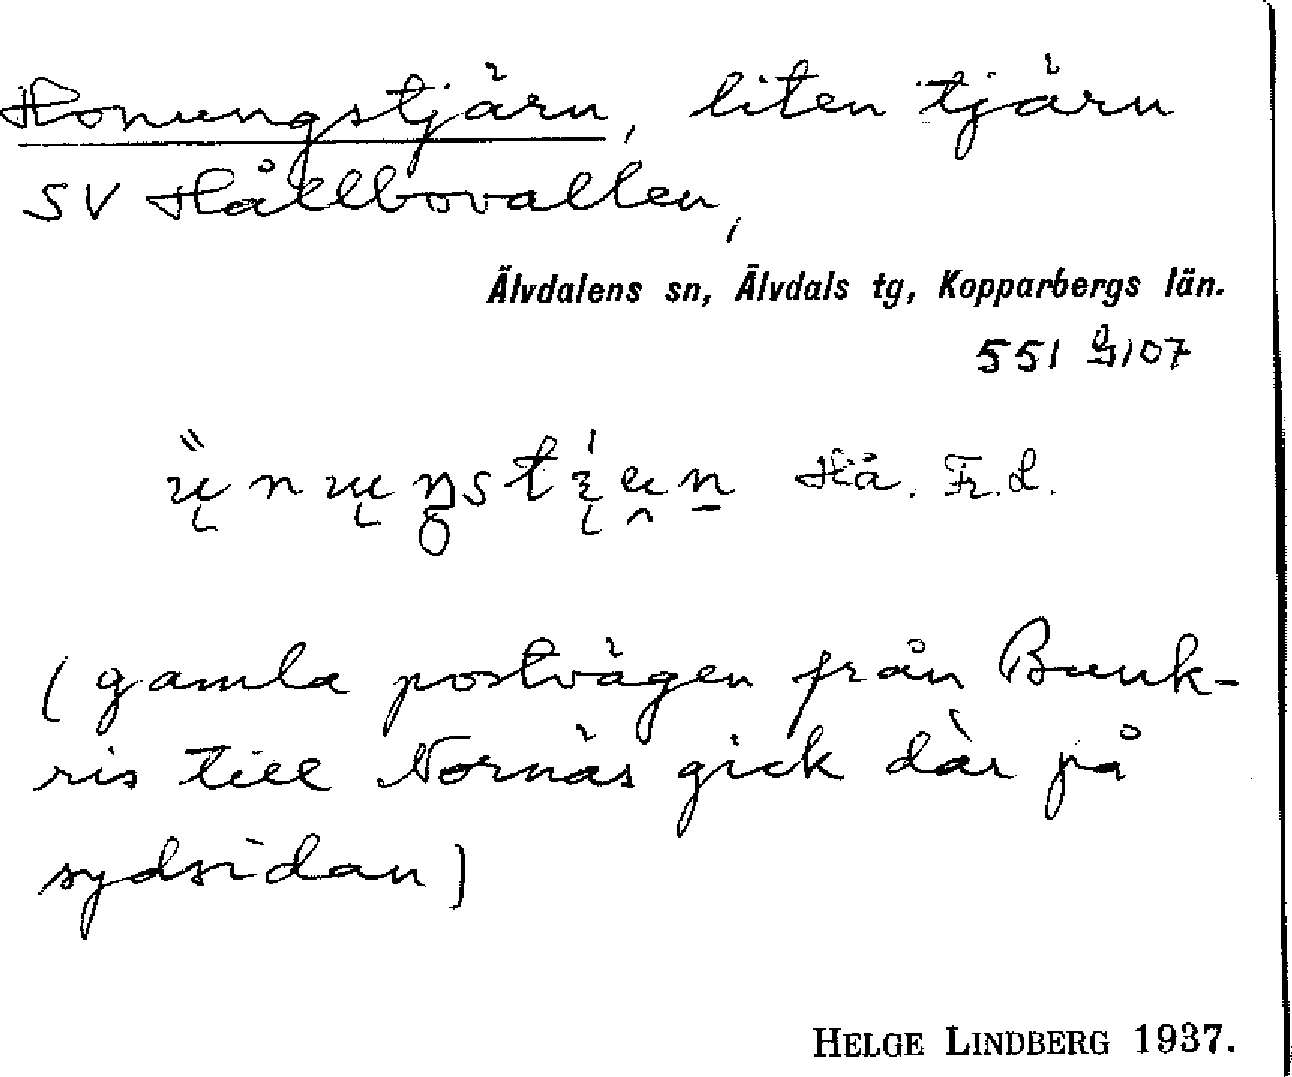 Honungstjärn, liten tjärn
SV Hållbovallen,
Älvdalens sn, Älvdals tg, Kopparbergs län.
551 107
Hå. Fr. L.
(gamla postvägen från Bunk-
ris till Nornäs gick där på
sydsidan)
HELGE LINDBERG 1937.